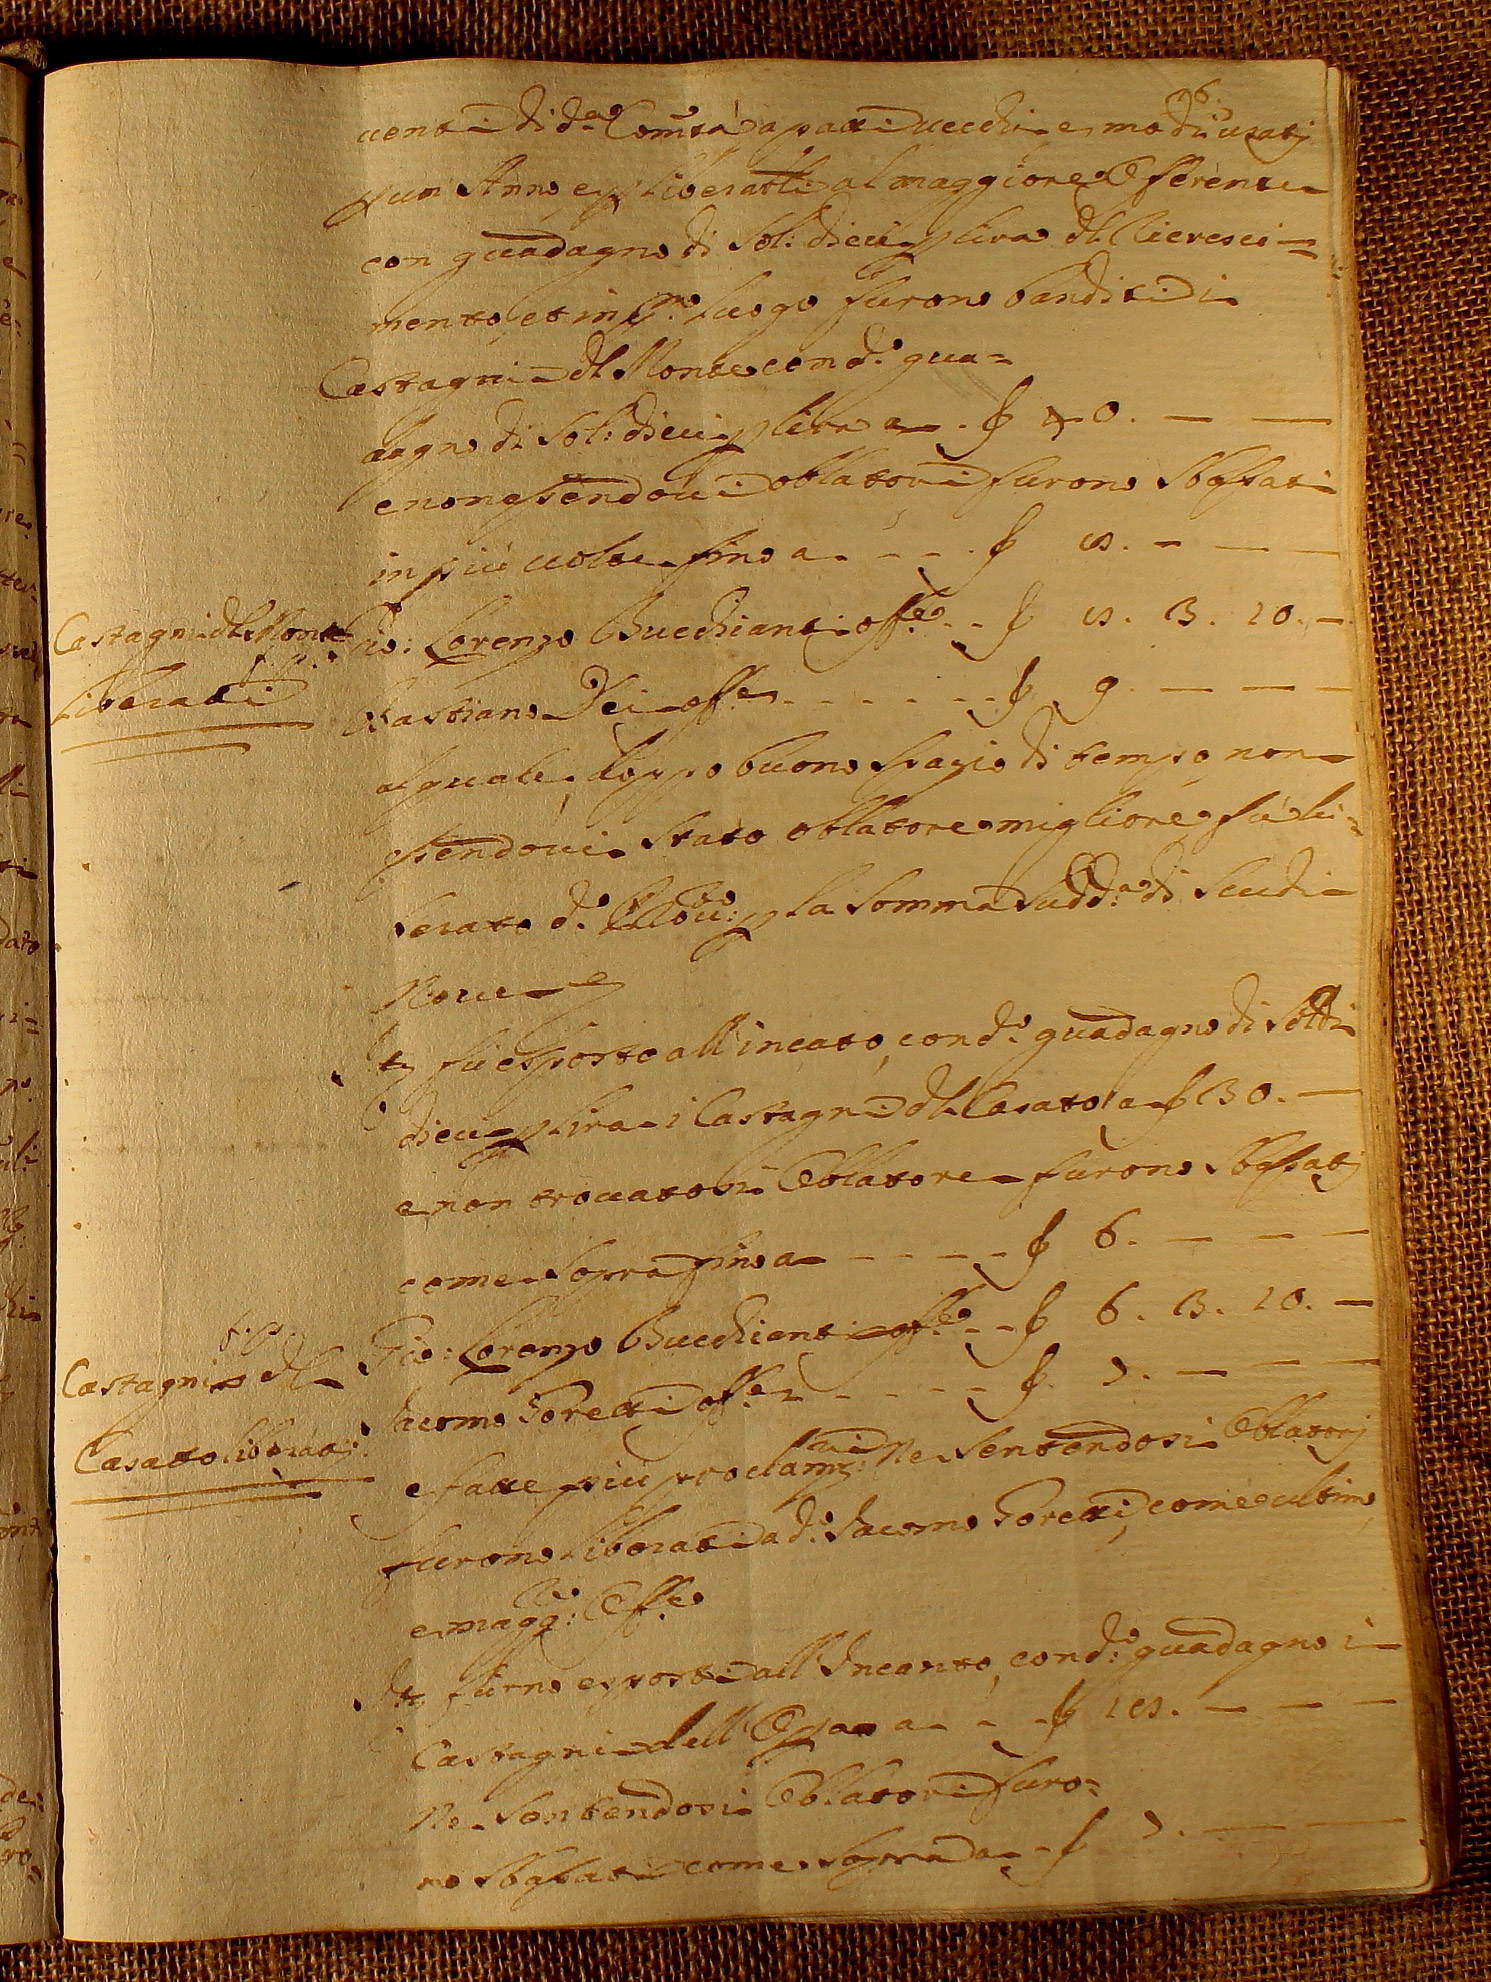 76.
uenti di d.a Com̃tà a patti uecchi e modi usatj
p un Anno e p liberarli al maggiore Offerente
con guadagno di Sol: dieci p lira dl Ricresci=
mento, et in p.mo luogo furono banditi i
Castagni dl Monte con d.o gua=
dagno di Sol: dieci p lira a . 0. — —
e non essendoui oblatori furono Sbassati
in più uolte fino a - - -
Castagni dl Monte
Liberati
Gio: Lorenzo Bucchianti off.e - -
Bastiano Dei off.e - - - - - 9. — — —
al quale doppo buono spazio di tempo non
essendoui stato oblatore migliore fù li=
berato d.o p la somma Sudd.a di Scudi
Noue
It fù esposto all'incato, con d.o guadagno di Soldi
dieci p lira i Castagni dl Casatto a 30. —
e non trouatosi Oblatore furono Sbassatj
come sopra fino a - - - - 6. — — —
Castagni dl
Casatto liberatj
Gio: Lorenzo Bucchianti off.e - - 6. 3. 10. —
Jacomo Toretti off.e - - - - - 7. — — —
e fatte più proclami: Ne Sentendosi Oblatorj
furono liberati a d.o Jacomo Toretti, come ultimo
e magg.re Off.e
It furno esposti all'Incanto, con d.o guadagno i
Castagni dell' a - - — — —
Ne Sentendosi Oblatori furo=
no Sbassati come sopra a - 7. — —